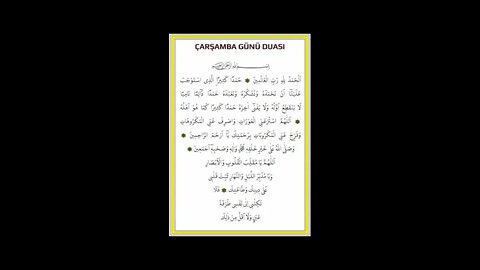 ÇARŞAMBA GÜNÜ DUASI
بسم الله الرحمن الرحيم
اَلْحَمْدُ لِلّٰهِ رَبِّ الْعَالَمِينَ حَمْدًا كَثِيرًا الَّذِى اسْتَوْجَبَ
عَلَيْنَا اَنْ نَحْمَدَهُ وَنَشْكُرَهُ وَنَعْبُدَهُ حَمْدًا دَائِمًا
لَا يَنْقَطِعُ اَوَّلُهُ وَلَا اٰخِرُهُ حَمْدًا كَثِيرًا كَمَا هُوَ اَهْلُهُ
اَللّٰهُمَّ اسْتُرْ الْعَوْرَاتِ وَاصْرِفْ عَنِّى الْمَكْرُوهَاتِ
وَفَرِّجْ عَنِّى الْمَكْرُوبَاتِ بِرَحْمَتِكَ يَا اَرْحَمَ الرَّاحِمِينَ
وَصَلَّى اللّٰهُ عَلٰى خَيْرِ خَلْقِهِ وَاٰلِهِ وَصَحْبِهِ اَجْمَعِينَ
اَللّٰهُمَّ يَا مُقَلِّبَ الْقُلُوبِ وَالْاَبْصَارِ
وَيَا مُدَبِّرَ اللَّيْلِ وَالنَّهَارِ ثَبِّتْ قَلْبِى
عَلٰى دِينِكَ وَطَاعَتِكَ فَلَا
تَكِلْنِى اِلٰى نَفْسِى طَرْفَةَ
عَيْنٍ وَلَا اَقَلَّ مِنْ ذٰلِكَ